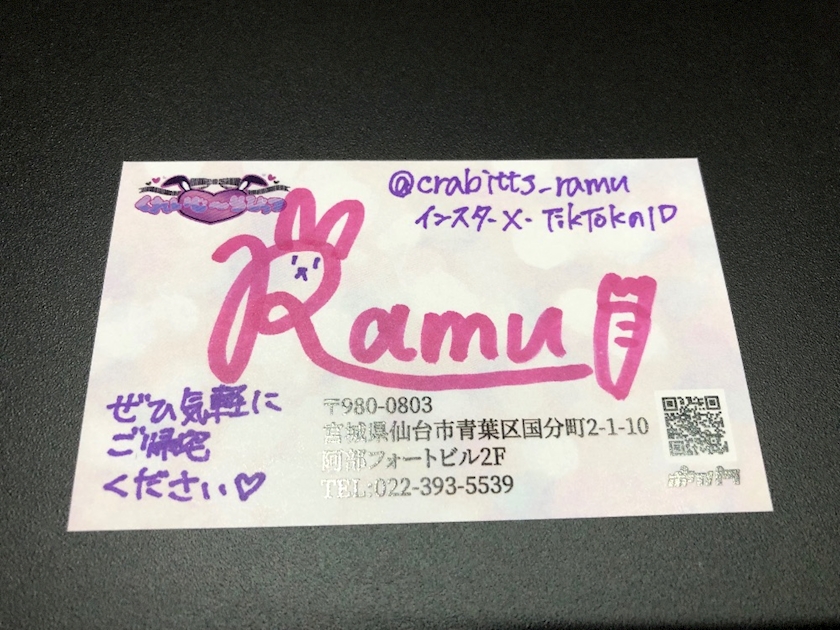 @crabitts_ramu
インスタ・X・TikTokのID
Ramu
ぜひ気軽に
ご帰宅
ください♡
〒980-0803
宮城県仙台市青葉区国分町2-1-10
阿部フォートビル2F
TEL:022-393-5539